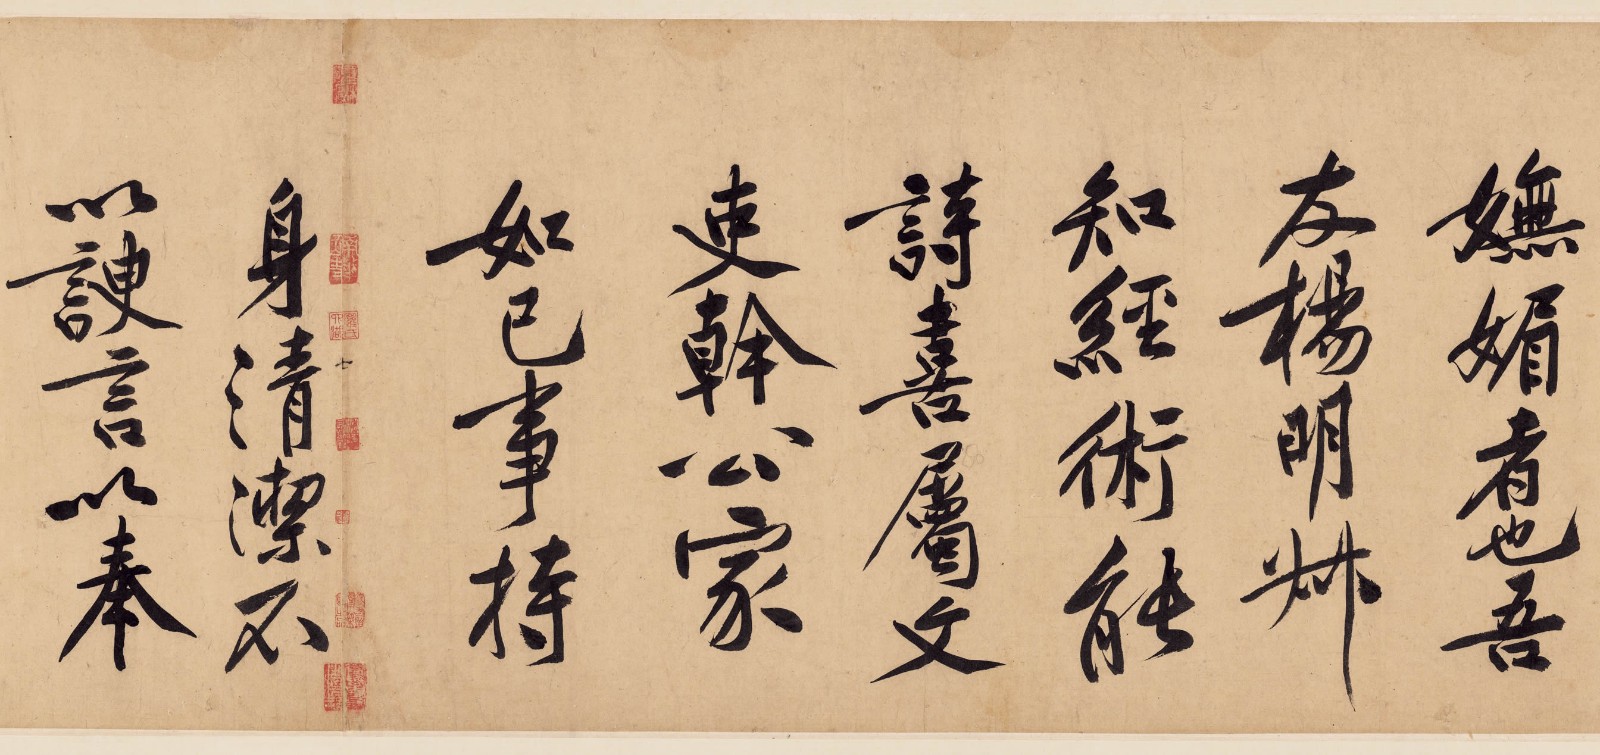 嫵媚者也吾
友楊明叔
知經術能
詩喜屬文
吏幹公家
如已事持
身清潔不
以諛言以奉
七